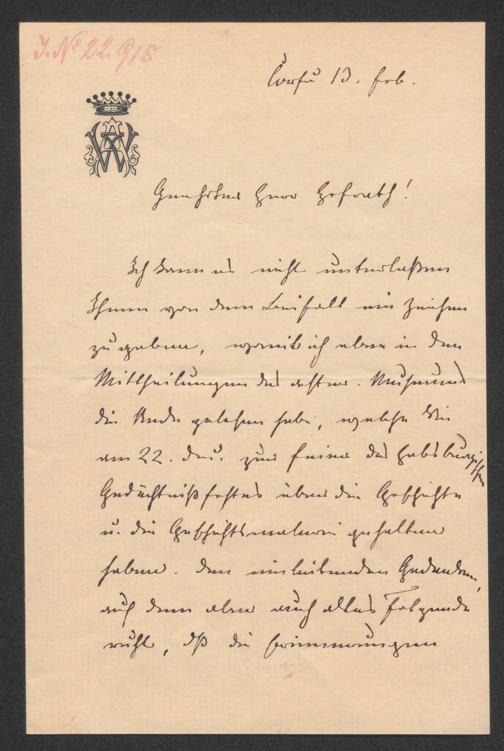 J. No 22.915
Corfu 13. Feb.
AW
Geehrter Herr Hofrath!
Ich kann es nicht unterlassen
Ihnen von dem Beifall ein Zeichen
zu geben, womit ich eben in den
Mittheilungen des oesterr. Museums
die Rede gelesen habe, welche Sie
am 22. Dec. zur Feier des habsburgischen
Gedächtnißfestes über die Geschichte
u. die Geschichtsmalerei gehalten
haben. Den einleitenden Gedanken,
auf dem aber auch alles Folgende
ruht, dß die Erinnerungen